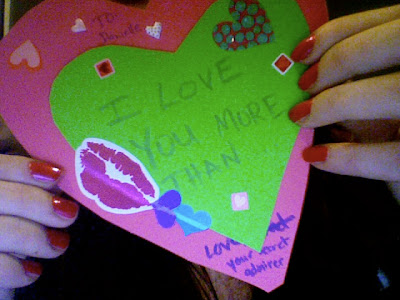 To:
I LOVE
YOU MORE
THAN
your secret
admirer